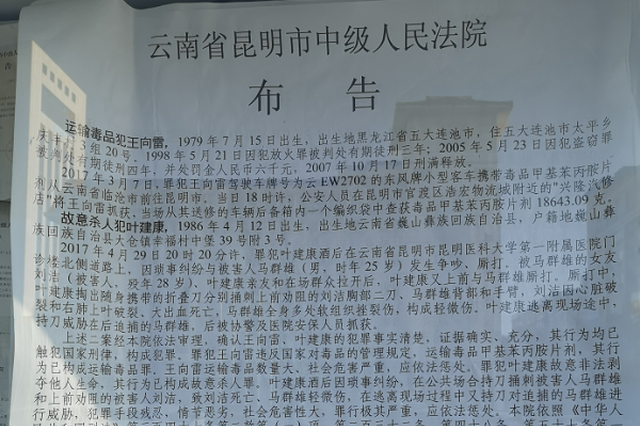 云南省昆明市中级人民法院
布 告
运输毒品犯王向雷，1979年7月15日出生，出生地黑龙江省五大连池市，住五大连池市太平乡
庆丰村3组20号。1998年5月21日因犯放火罪被判处有期徒刑三年；2005年5月23日因犯盗窃罪
被判处有期徒刑四年，并处罚金人民币六千元，2007年10月17日刑满释放。
2017年3月7日，罪犯王向雷驾驶车牌号为云EW2702的东风牌小型客车携带毒品甲基苯丙胺片
剂从云南省临沧市前往昆明市。当日18时许，公安人员在昆明市官渡区浩宏物流城附近的“兴隆汽修
店”将王向雷抓获，当场从其送修的车辆后备箱内一个编织袋中查获毒品甲基苯丙胺片剂18643.09克。
故意杀人犯叶建康，1986年4月12日出生，出生地云南省巍山彝族回族自治县，户籍地巍山彝
族回族自治县大仓镇幸福村中堡39号附3号。
2017年4月29日20时20分许，罪犯叶建康酒后在云南省昆明市昆明医科大学第一附属医院门
诊楼北侧道路上，因琐事纠纷与被害人马群雄（男，时年25岁）发生争吵、厮打，被马群雄的女友
刘洁（被害人，殁年28岁）、叶建康亲友和在场群众拉开后，叶建康又上前与马群雄厮打。厮打中，
叶建康掏出随身携带的折叠刀分别捅刺上前劝阻的刘洁胸部二刀、马群雄背部和手臂，刘洁因心脏破
裂和右肺上叶破裂、大出血死亡，马群雄全身多处软组织挫裂伤，构成轻微伤。叶建康逃离现场途中，
持刀威胁在后追捕的马群雄，后被协警及医院安保人员抓获。
上述二案经本院依法审理，确认王向雷、叶建康的犯罪事实清楚，证据确实、充分，其行为均已
触犯国家刑律，构成犯罪。罪犯王向雷违反国家对毒品的管理规定，运输毒品甲基苯丙胺片剂，其行
为已构成运输毒品罪。王向雷运输毒品数量大、社会危害严重，应依法惩处。罪犯叶建康故意非法剥
夺他人生命，其行为已构成故意杀人罪。叶建康酒后因琐事纠纷，在公共场合持刀捅刺被害人马群雄
和上前劝阻的被害人刘洁，致刘洁死亡、马群雄轻微伤，在逃离现场过程中又持刀对追捕的马群雄进
行威胁，犯罪手段残忍，情节恶劣，社会危害性大，罪行极其严重，应依法惩处。本院依照《中华人